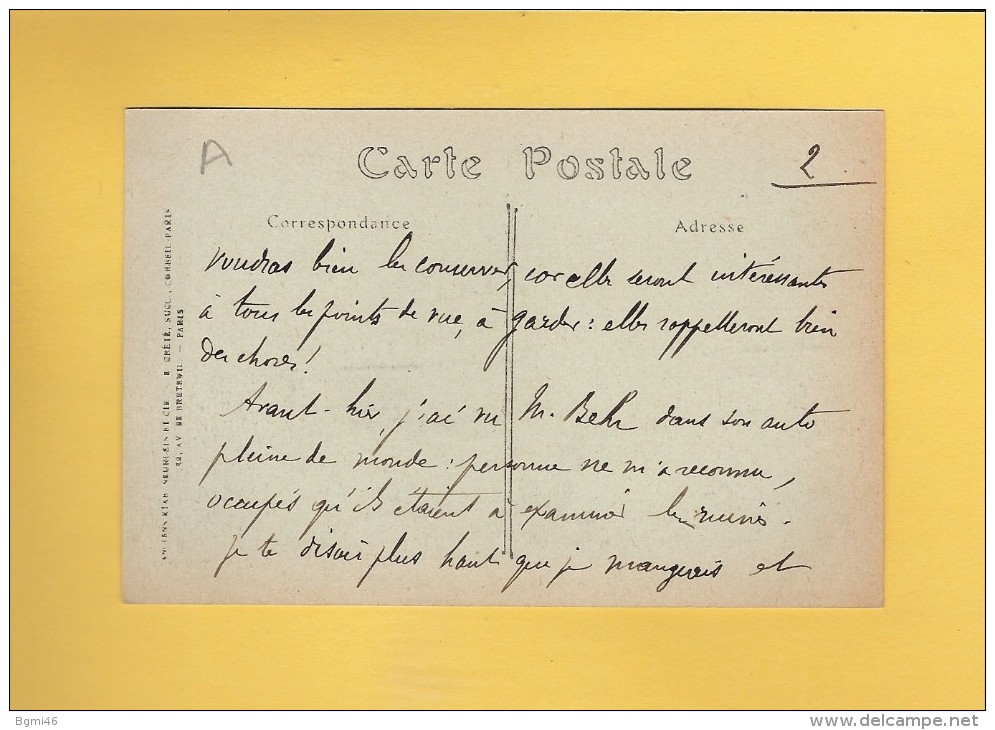 A
Carte Postale
2
Correspondance
Adresse
voudras bien les conserver, car elle seront intéressantes
à tous les points de vue, à garder : elles rappelleront bien
des choses !
Avant-hier, j'ai vu M. Behr dans son auto
pleine de monde : personne ne m'a reconnu,
occupés qu'ils étaient à examiner les ruines.
Je te disais plus haut que je mangeais et
ANCIENS ETAB. NEURDEIN ET CIE. - E. CRÉTÉ, SUCC. CORBEIL-PARIS
52, AV. DE BRETEUIL - PARIS
Bgmi46
delcampe.net